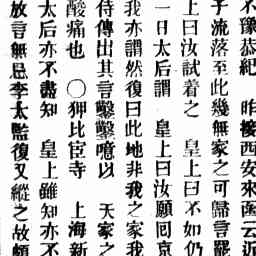 不豫恭紀　昨接西安來函云近
子流落至此幾無家之可歸言罷
上曰汝試着之　皇上曰不如仍
一日太后謂　皇上曰汝願囘京
我亦謂然復曰此地非我之家我
待傳出其言鑿鑿噫以　天家之
酸痛也　〇狎比臣寺　上海新
太后亦不盡知　皇上雖知亦不
放言無忌李太監復又縱之故顏